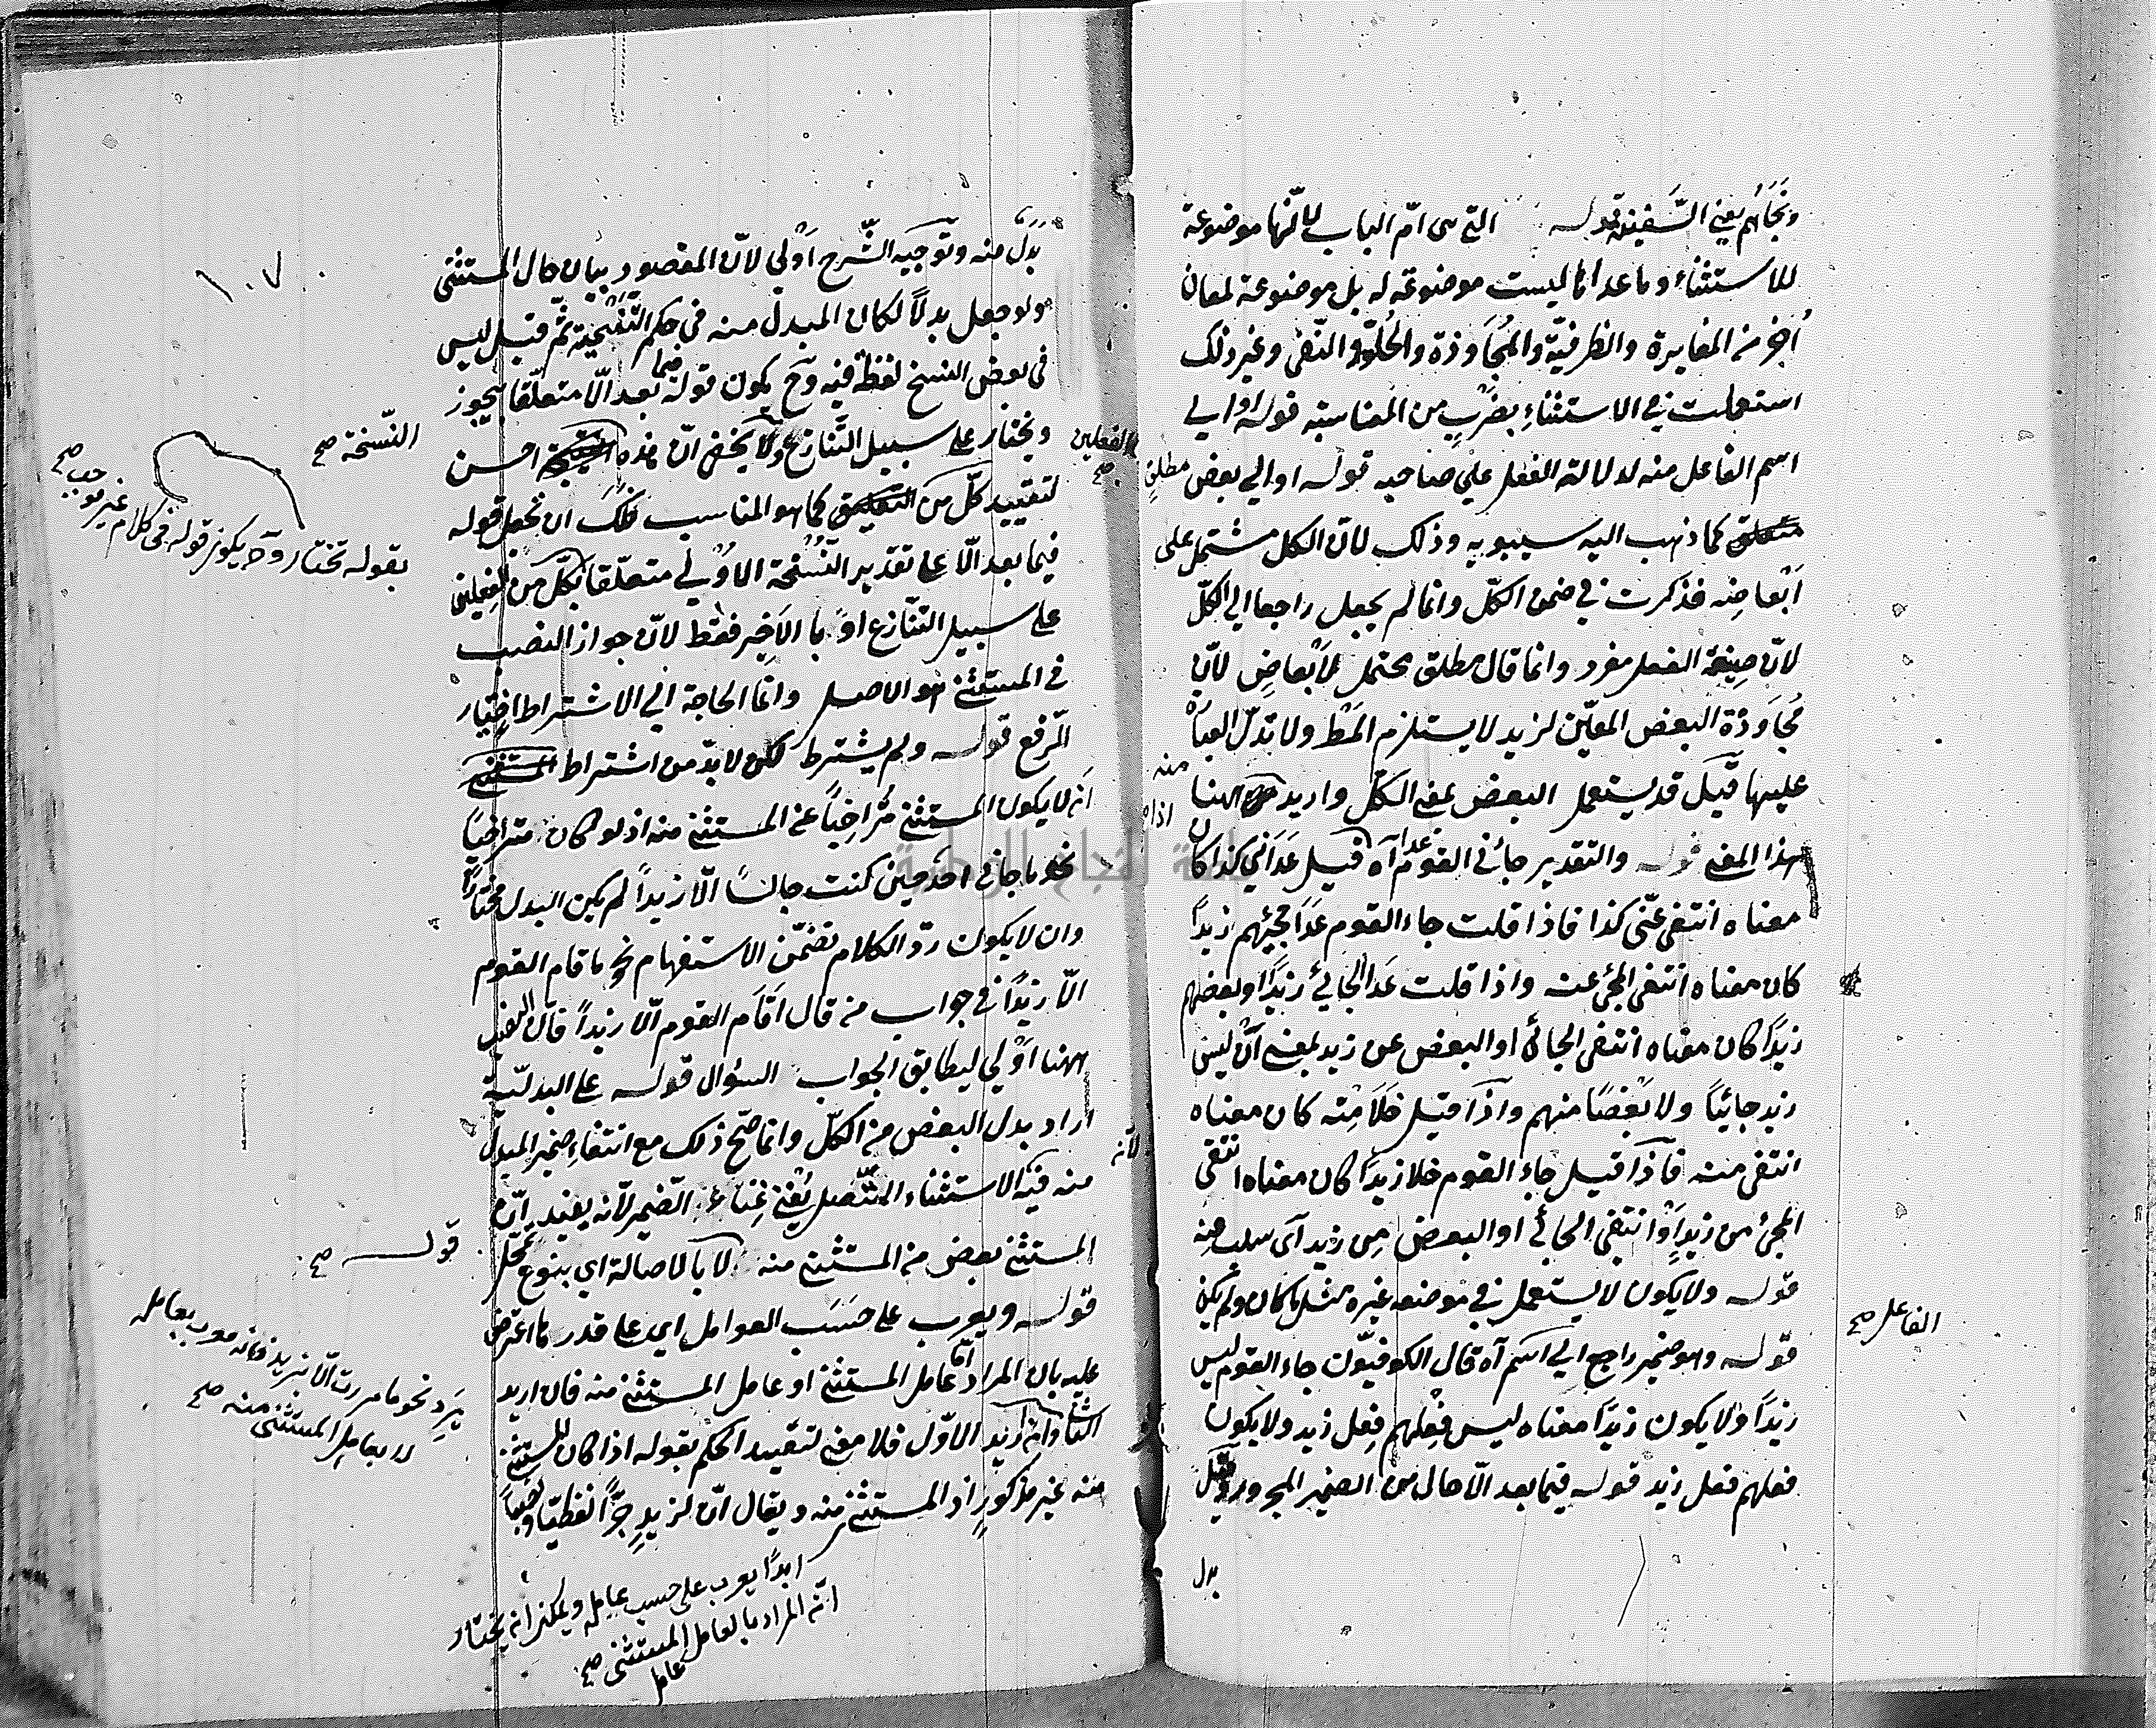 ونجاهم يعني السفينة قوله التي هي امّ الباب لانّها موضوعة
للاستثناء وما عداها ليست موضوعة له بل موضوعة لمعان
أخر من المغايرة والظرفيّة والمجاوزة والخلوّ والنّفي وغير ذلك
استعملت في الاستثناء بضربٍ من المناسبة قوله او الي
اسم الفاعل منه لدلالة الفعل علي صاحبه قوله او الي بعض مطلقٍ
كما ذهب اليه سيبويه وذلك لانّ الكل مشتمل على
أبعاضِه فذكرت في ضمن الكلّ وانما لم يجعل راجعا الي الكلّ
لانّ صيغة الفعل مفرد وانما قال مطلق محتمل لأبعاضٍ لأنّ
مُجاوزة البعض المعيّن لزيد لا يستلزم المط ولا تدلّ العبارة
عليها قيل قد يستعمل البعض بمعني الكلّ واريد منه ههنا
هذا المعني قوله والتقدير جائني القوم عدا آه قيل عداني كذا كان
اذا
معناه انتفى عنّي كذا فاذا قلت جاء القوم عدا مجيئهم زيداً
كان معناه انتفي المجئ عنه واذا قلت عدا الجائي زيداً او بعضهم
زيداً كان معناه انتفي الجائي او البعض عن زيد بمعني أنّ ليس
زيد جائيًا ولا بعضًا منهم واذا قيل خلا منه كان معناه
انتفي منه فاذا قيل جاء القوم خلا زيداً كان معناه انتفي
المجئ من زيدٍ أو انتفي الجائي او البعض من زيد أي سلب منه
قوله ولا يكون لا يستعمل في موضعه غيره مثل ما كان ولم يكن
قوله وهو ضمير راجع الي اسم آه قال الكوفيّون جاء القوم ليس
الفاعل صح
زيداً ولا يكون زيداً معناه ليس فعلهم فعل زيد ولا يكون
فعلهم فعل زيد قوله فيما بعد الّا حال من الضمير المجرور وقيل
بدل
١٠٧
بدل منه وتوجيه الشّرح أولي لانّ المقصود بيان حال المستثنى
ولو جعل بدلاً لكان المبدل منه في حكم التّنحية ثمّ قيل ليس
في بعض النسخ لفظة فيه وح يكون قوله فيما بعد الّا متعلّقا بيجوز
ويختار على سبيل التّنازع ولا يخفى انّ هذه احسن
النّسخة صح
لتقييد كلّ من كما هو المناسب فلك ان تجعل قوله
الفعلين صح
بقوله تختار وح يكون قوله في كلام غير موجب صح
فيما بعد الّا على تقدير النّسخة الاولي متعلّقا بكلّ من الفعلين
على سبيل التّنازع او بالأخير فقط لانّ جواز النصب
في المستثنى هو الاصل وانّما الحاجة الي الاشتراط اختيار
الرّفع قوله ولم يشترط لكن لا بدّ من اشتراط
ان لا يكون المستثنى مُتراخِياً عن المستثنى منه اذ لو كان متراخياً
نحو ما جاءني احد حين كنت جالسًا الّا زيداً لم يكن البدل مختاراً
وان لا يكون ردّ الكلام تضمّن الاستفهام نحو ما قام القوم
الّا زيداً في جواب من قال أقام القوم الّا زيداً فان النصب
ههنا أولي ليطابق الجواب السؤال قوله على البدليّة
اراد بدل البعض من الكلّ وانما صحّ ذلك مع انتفاء ضمير المبدل
منه فيه لانّه الاستثناء المتّصل يُغني غِناء الضّمير لانّه يفيد انّ
المستثنى بعض من المستثنى منه لا بالاصالة اي بنوع تمحّل
قوله صح
قوله ويعرب على حَسَب العوامل اي على قدر ما اعترض
عليه بان المراد امّا عامل المستثنى او عامل المستثنى منه فان اريد
الثاني يَرِد نحو ما مررت الّا بزيد فانه معرب بعامله
لا بعامل المستثنى منه صح
وان اريد الاوّل فلا معنى لتقييد الحكم بقوله اذا كان المستثنى
منه غير مذكورٍ اذ المستثنى منه ويقال انّ لزيدٍ جرّاً لفظيّا ونصباً
ابداً يعرب على حسب عامله ويمكن ان يختار
انّ المراد بالعامل عامل المستثنى صح